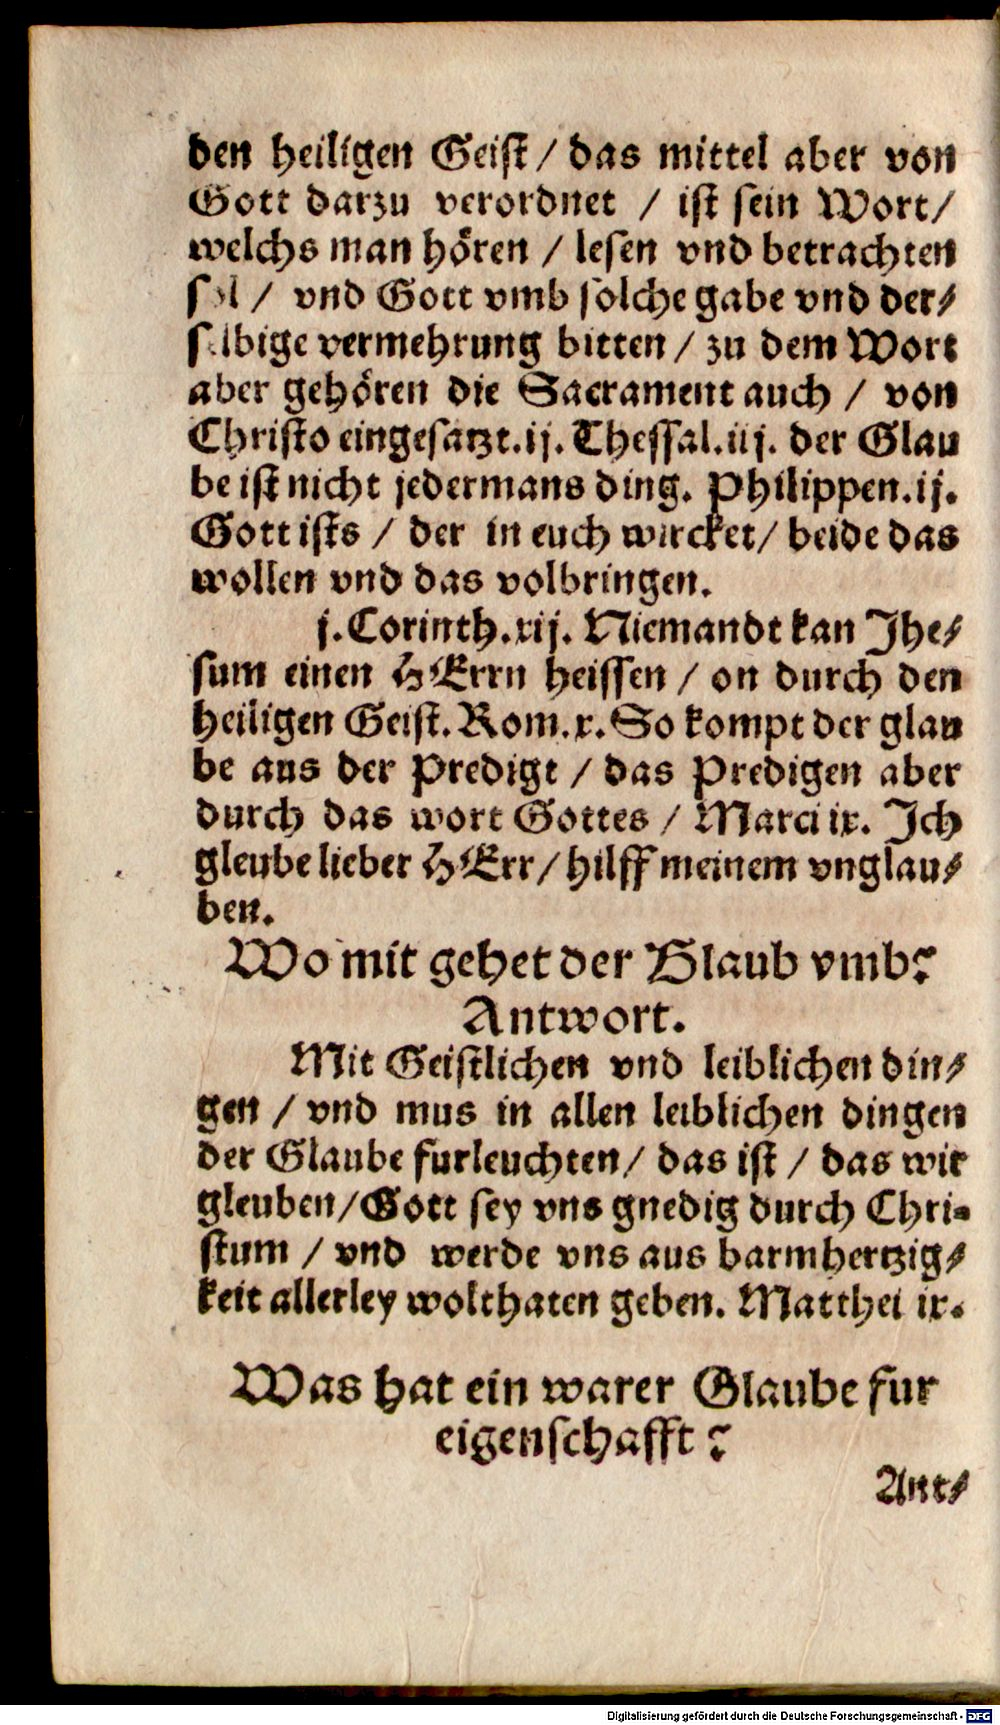 den heiligen Geist / das mittel aber von
Gott darzu verordnet / ist sein Wort/
welchs man hören / lesen vnd betrachten
sol / vnd Gott vmb solche gabe vnd der⸗
selbige vermehrung bitten / zu dem Wort
aber gehören die Sacrament auch / von
Christo eingesatzt. ij. Thessal. iij. der Glau
be ist nicht jedermans ding. Philippen. ij.
Gott ists / der in euch wircket/ beide das
wollen vnd das volbringen.
j. Corinth. xij. Niemandt kan Jhe⸗
sum einen HErrn heissen / on durch den
heiligen Geist. Rom. x. So kompt der glau
be aus der Predigt / das Predigen aber
durch das wort Gottes / Marci ix. Jch
gleube lieber HErr/ hilff meinem vnglau⸗
ben.
Wo mit gehet der Glaub vmb?
Antwort.
Mit Geistlichen vnd leiblichen din⸗
gen / vnd mus in allen leiblichen dingen
der Glaube furleuchten/ das ist / das wir
gleuben/ Gott sey vns gnedig durch Chri⸗
stum / vnd werde vns aus barmhertzig⸗
keit allerley wolthaten geben. Matthei ix.
Was hat ein warer Glaube fur
eigenschafft?
Ant⸗
Digitalisierung gefördert durch die Deutsche Forschungsgemeinschaft - DFG